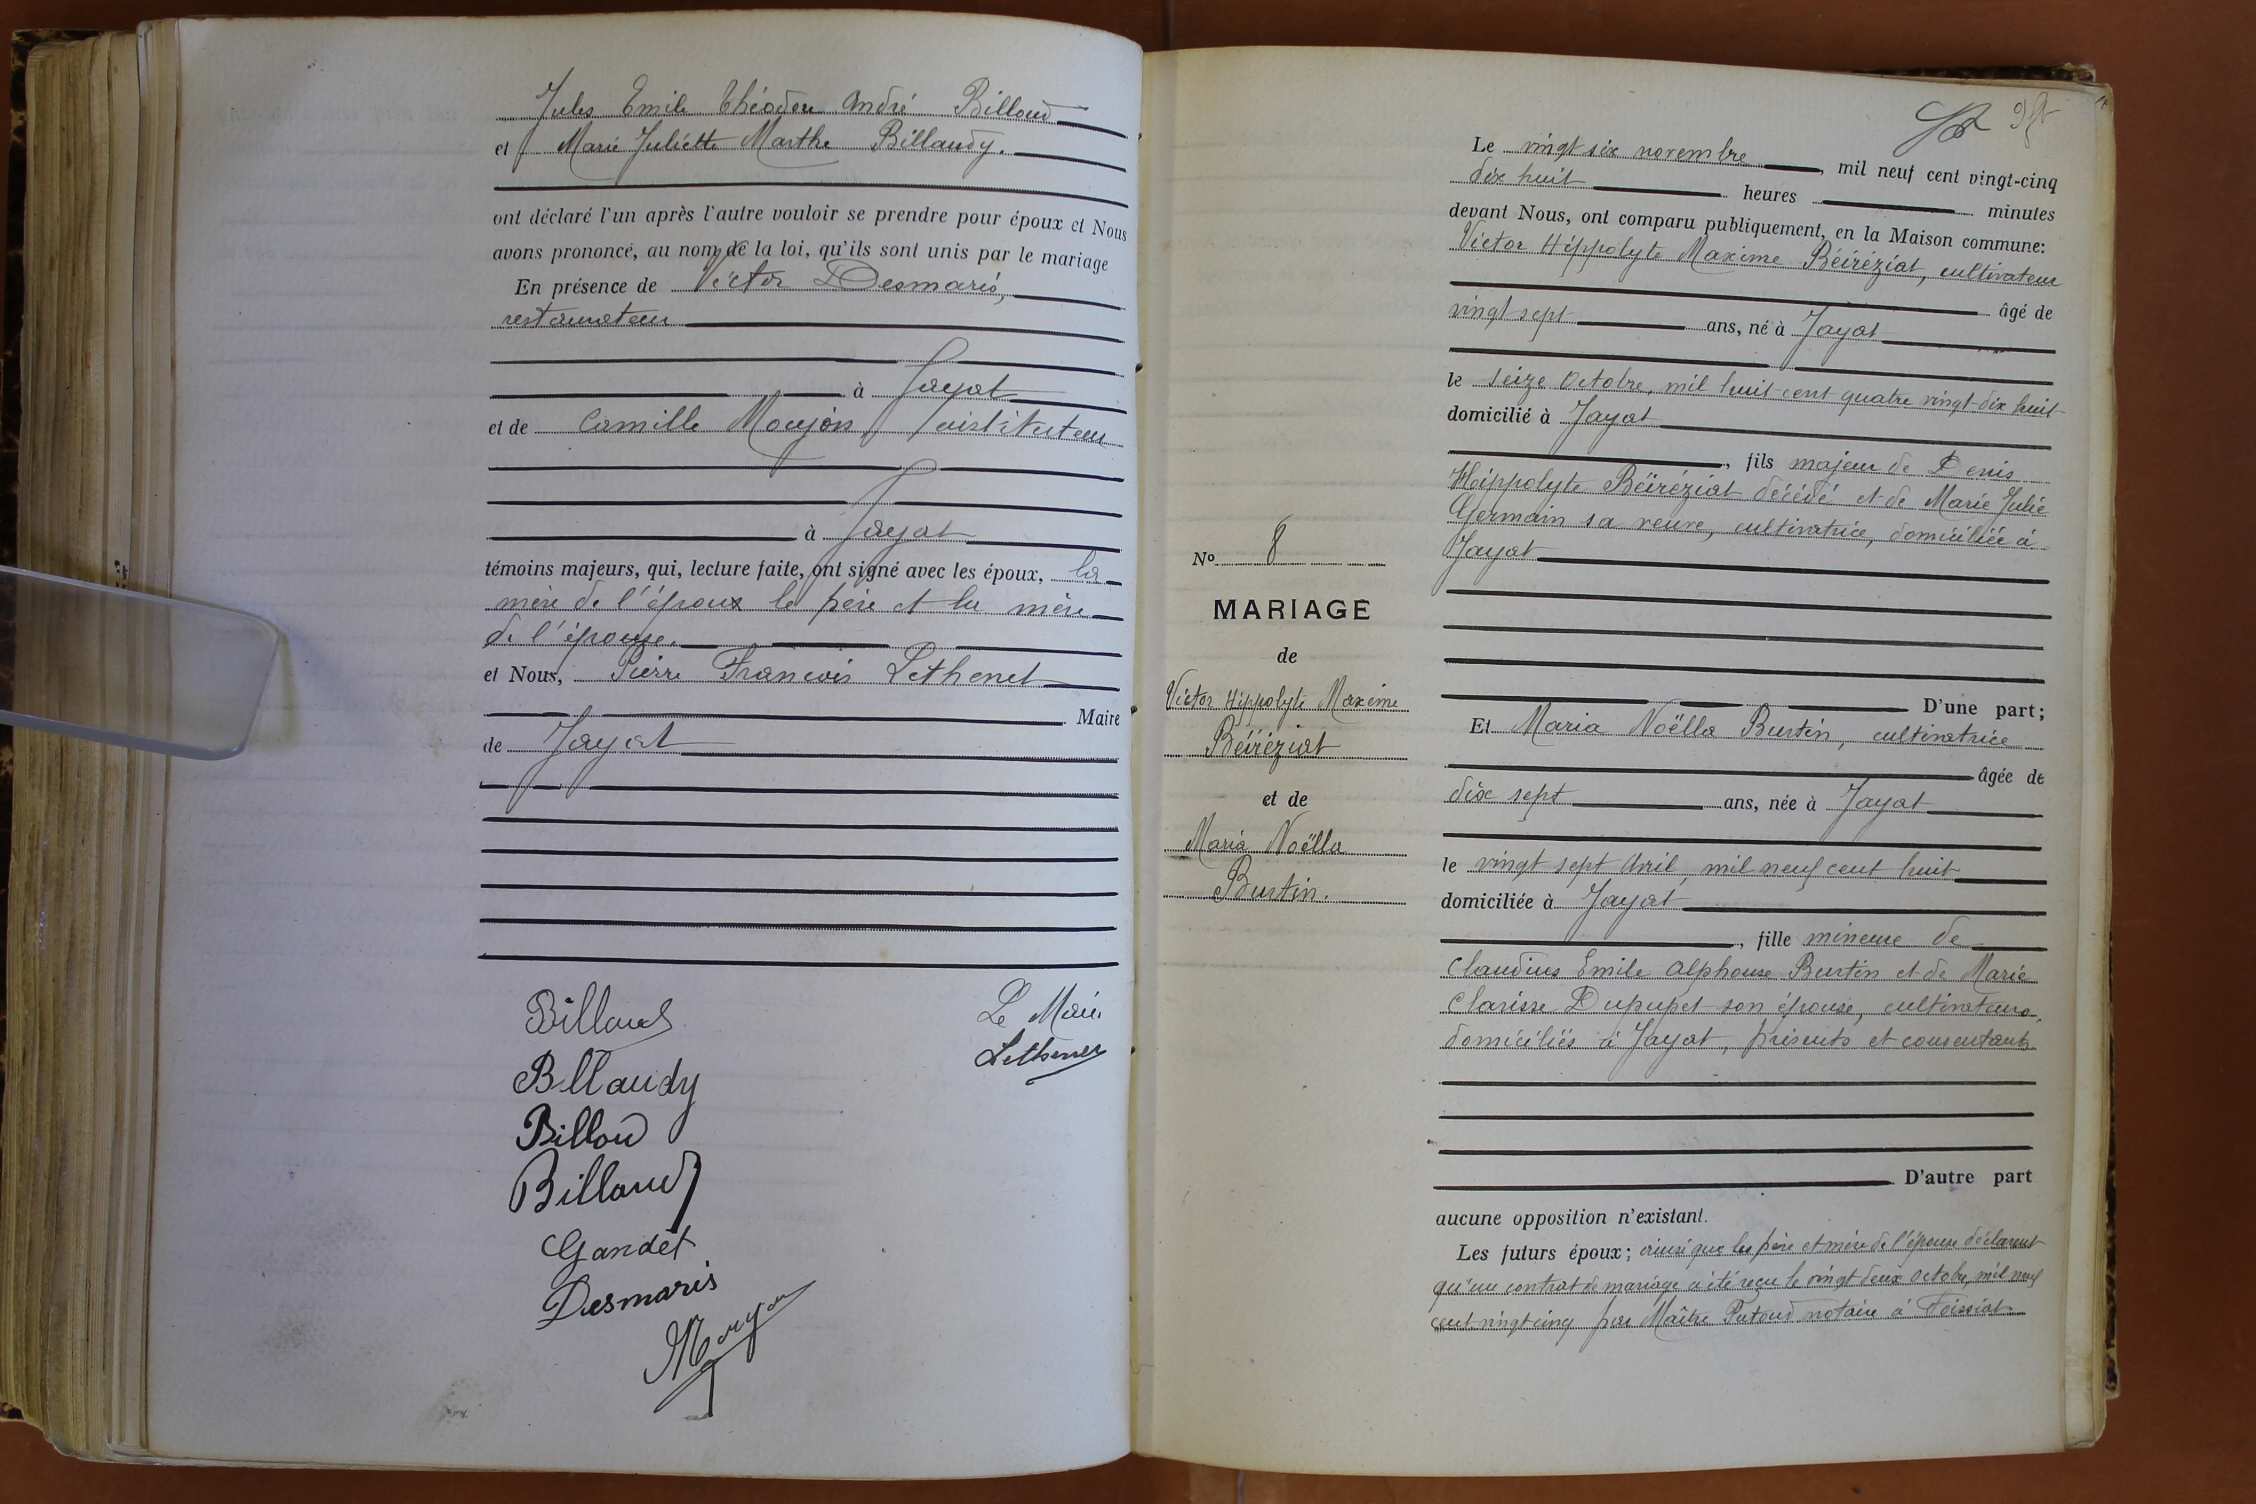 Jules Emile Théodore André Billoud
et Marie Juliette Marthe Billaudy.
ont déclaré l'un après l'autre vouloir se prendre pour époux et Nous
avons prononcé, au nom de la loi, qu'ils sont unis par le mariage
En présence de Victor Desmaris,
restaurateur
à Jayat
et de Camille Moujon, instituteur
à Jayat
témoins majeurs, qui, lecture faite, ont signé avec les époux, la
mère de l'époux le père et la mère
de l'épouse.
et Nous, Pierre François Lethenet
Maire
de Jayat
Billoud
Le Maire
Billaudy
Lethenet
Billoud
Billaudy
Gandet
Desmaris
Moujon
Le vingt six novembre, mil neuf cent vingt-cinq
dix huit heures minutes
devant Nous, ont comparu publiquement, en la Maison commune:
Victor Hippolyte Maxime Béréziat, cultivateur
âgé de
vingt sept ans, né à Jayat
le seize octobre, mil huit cent quatre vingt dix huit
domicilié à Jayat
, fils majeur de Denis
Hippolyte Béréziat décédé et de Marie Julie
Germain sa veuve, cultivatrice, domiciliée à
Jayat
D'une part;
Et Maria Noëlla Burtin, cultivatrice
âgée de
dix sept ans, née à Jayat
le vingt sept Avril, mil neuf cent huit
domiciliée à Jayat
, fille mineure de
Claudius Emile Alphonse Burtin et de Marie
Clarisse Dupupet son épouse, cultivateurs,
domiciliés à Jayat, présents et consentants
D'autre part
aucune opposition n'existant.
Les futurs époux; ainsi que les père et mère de l'épouse déclarent
qu'un contrat de mariage a été reçu le vingt deux octobre, mil neuf
cent vingt cinq par Maître Putoud notaire à Foissiat
No 8
MARIAGE
de
Victor Hippolyte Maxime
Béréziat
et de
Maria Noëlla
Burtin.